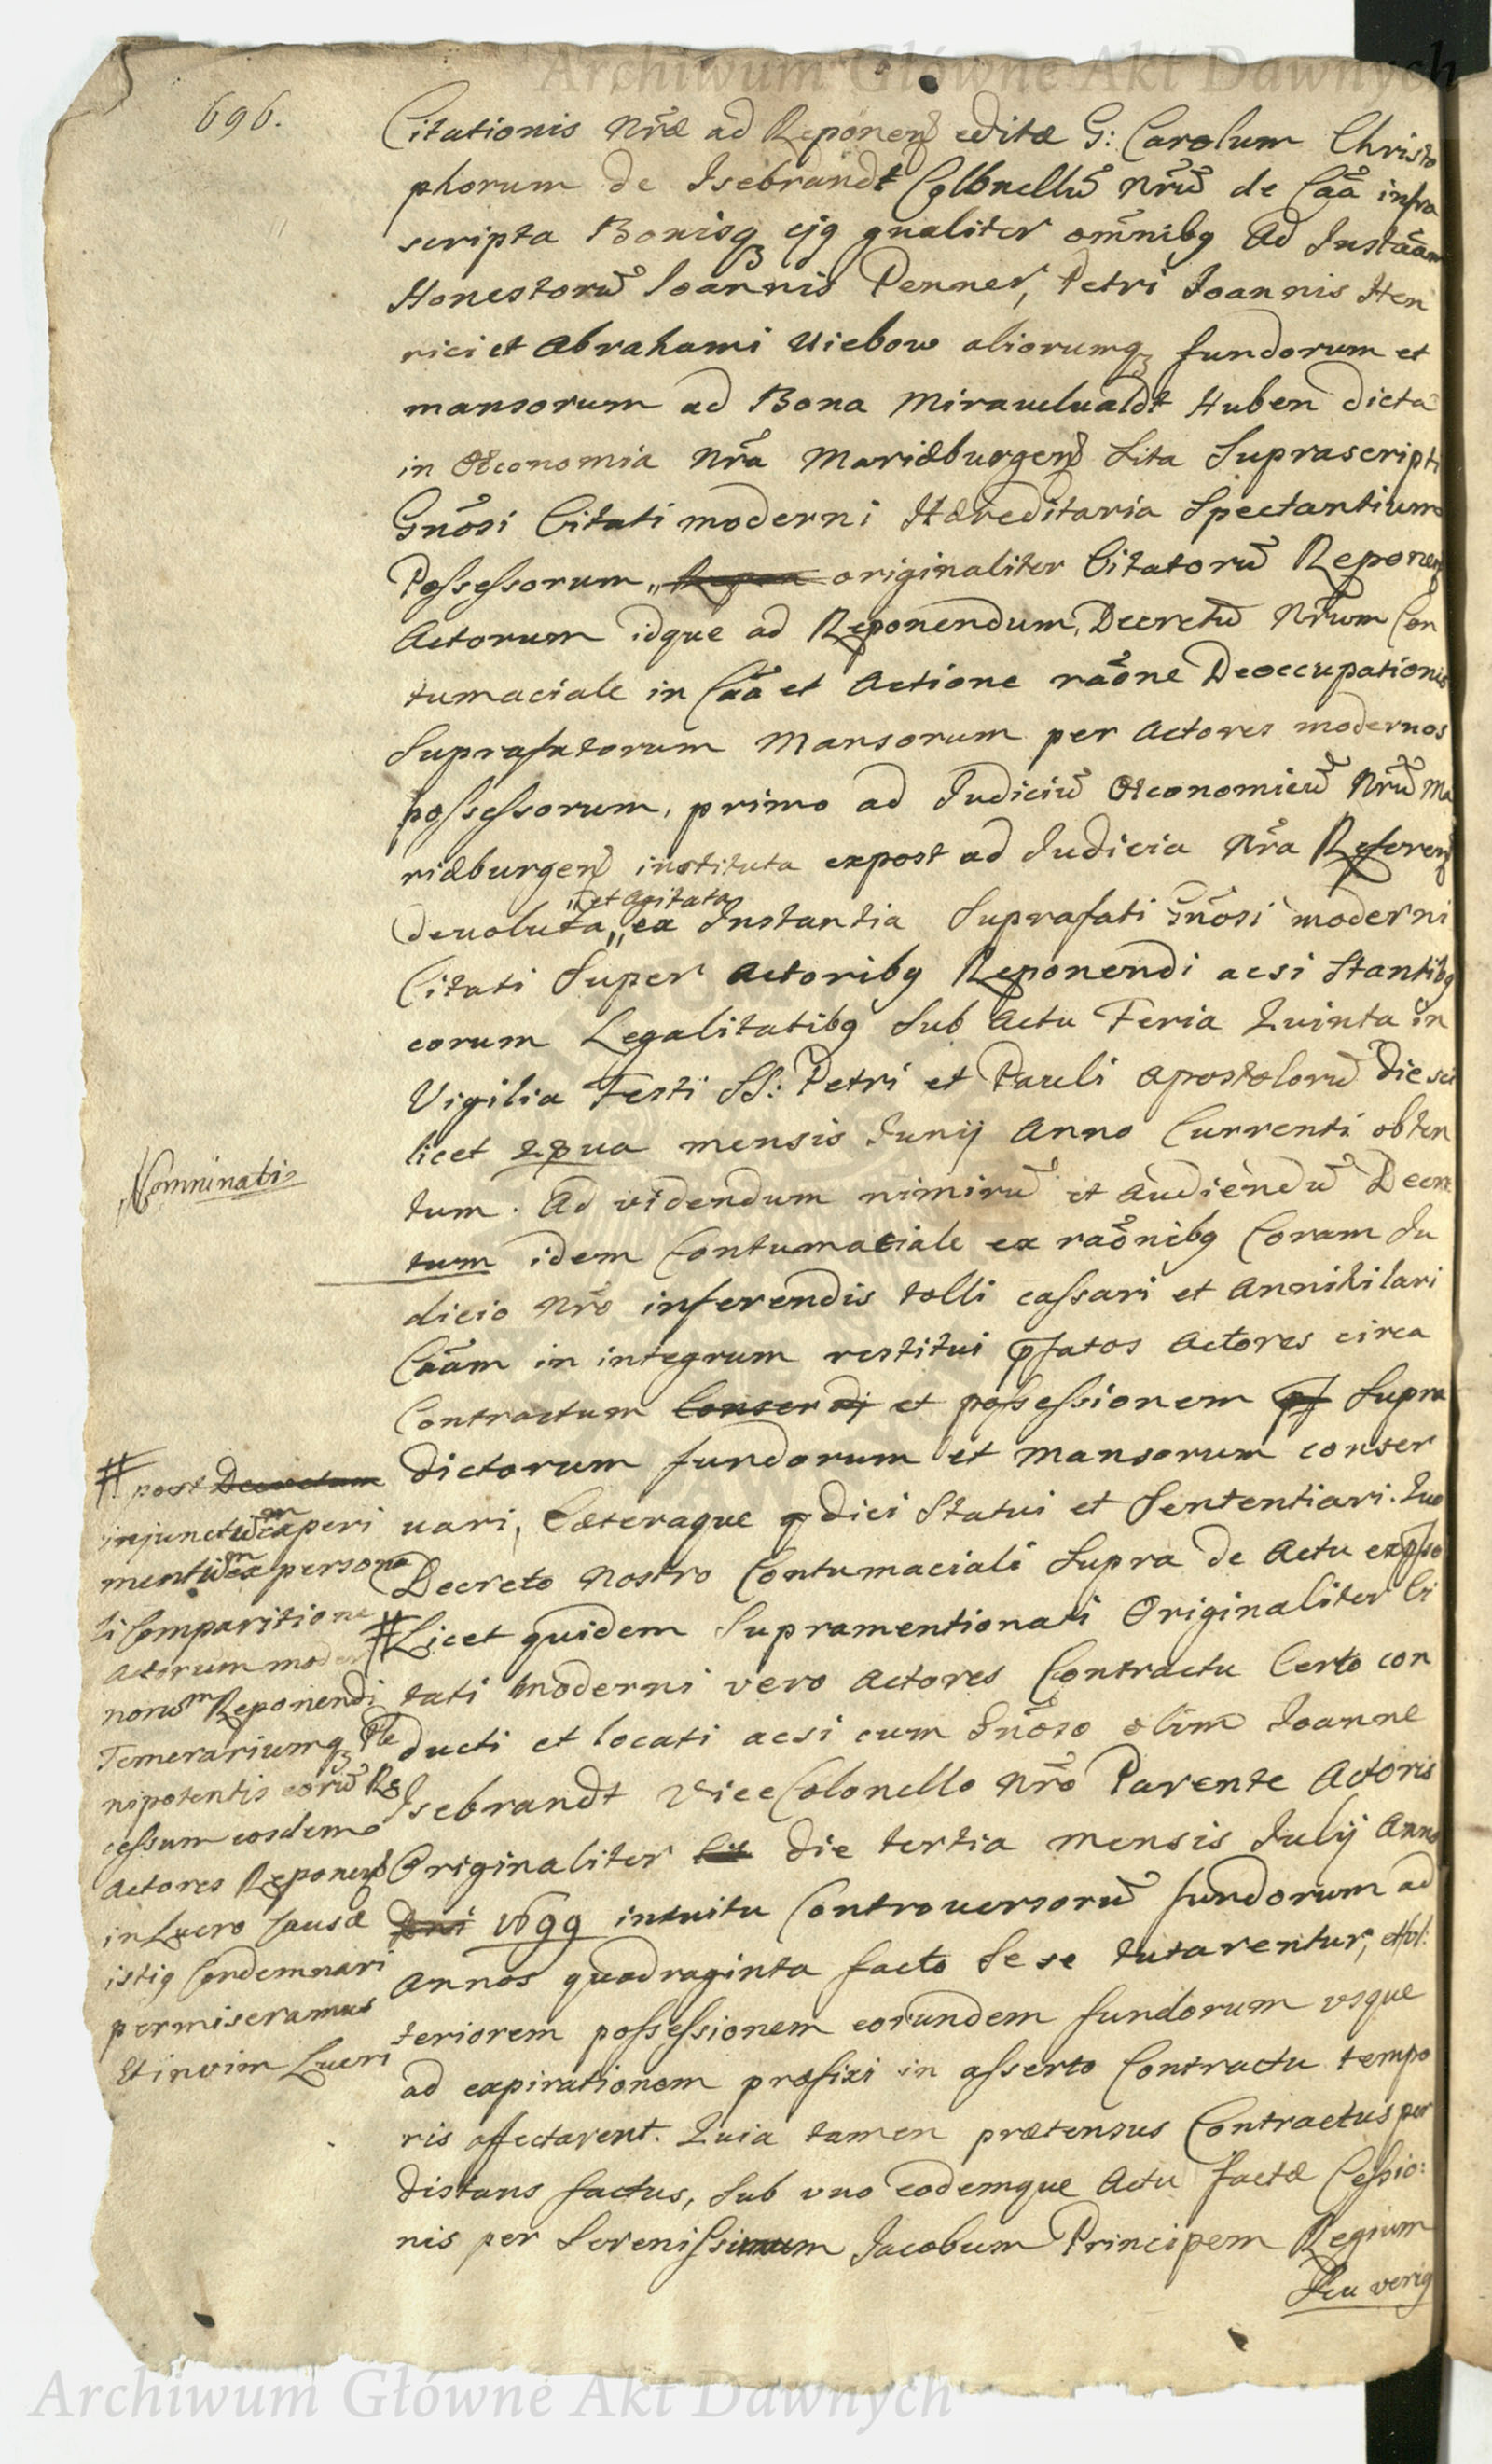 Archiwum Główne Akt Dawnych
696.
Citationis Nræ ad Reponen editæ G: Carolum Christo
phorum de Isebrandt Colbnellũ Nrũ de Caã infra
scripta Bonisq ejq gnaliter omnibq Ad Instãam
Honestorũ Ioannis Penner, Petri Joannis Hen
rici et Abrahami Wiebow aliorumq fundorum et
mansorum ad Bona Mirauelualdt Huben dicta
in Œconomia Nra Mariæburgen Sita Suprascripti
Gnosi Citati moderni Hæreditaria Spectantium
Possessorum, originaliter Citatorũ Reponen
Actorum idque ad Reponendum, Decretũ Nrum Con
tumaciale in Caã et Actione raone Deoccupationis
Suprafatorum Mansorum per Actores modernos
possessorum, primo ad Judiciũ Œconomicũ Nrũ Ma
riæburgen instituta expost ad Judicia Nra Referen
et agitata
devoluta, ex Instantia Suprafati Gnosi moderni
Citati Super Actoribq Reponendi acsi Stantibq
eorum Legalitatibq Sub Actu Feria Quinta in
Vigilia Festi SS: Petri et Pauli Apostolorũ die sci
licet 28ua mensis Junij Anno Currenti obten
Nominati
tum. Ad videndum nimirũ et Audiendũ Decre
tum idem Contumaciale ex raonibq Coram Ju
dicio Nro inferendis tolli cassari et Annihilari
Caãm in integrum restitui pfatos Actores circa
Contractum Conserdi et possessionem pf Supra
dictorum fundorum et Mansorum conser
uari, Cæteraque dici Statui et Sententiari. Quo
Decreto Nostro Contumaciali Supra de Actu expso
# Licet quidem Supramentionati Originaliter Ci
tati moderni vero Actores Contractu Certo con
ducti et locati acsi cum Gnoso olim Joanne
Isebrandt ViceColonello Nro Parente Actoris
Originaliter Cit die tertia mensis Julij Anno
Dni 1699 intuitu Controuersorũ fundorum ad
Annos quadraginta facto Se se tutarentur,
teriorem possessionem eorundem fundorum vsque
ad expirationem præfixi in asserto Contractu tempo
ris affectarent. Quia tamen prætensus Contractus per
distans factus, Sub vno eodemque Actu factæ Cessio:
nis per Serenissimum Jacobum Principem Regium
Seu veriq
# post Decretum
injunctũ experi
mentũ ex persona
li Comparitione
Actorum moder
norũ Reponendi
Temerariumq Ple
nipotentis eorũ Re
cessum eosdem
Actores Reponen
in Lucro Causæ
istiq Condemnari
permiseramus
Et in vim Lucri
Archiwum Główne Akt Dawnych